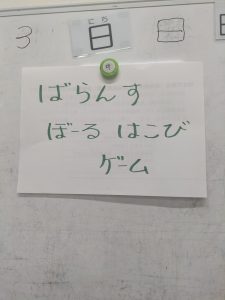 3
にち
日
日
ばらんす
ぼーる はこび
ゲーム